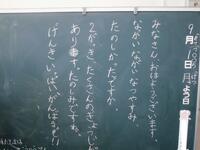 9月1日月よう日
みなさん、おはようございます。
ながいながいなつやすみ。
たのしかったですか。
2がっき、たくさんのぎょうじが
あります。たのしみですね。
げんきいっぱいがんばろう！